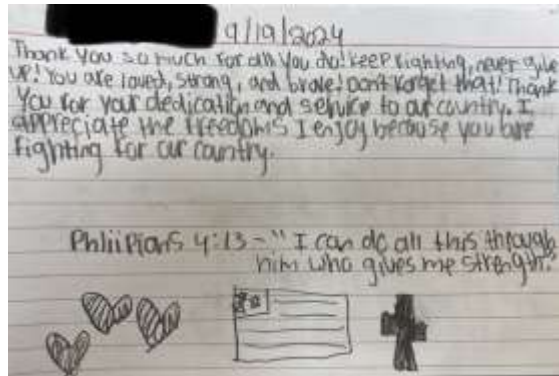 9/19/2024
Thank you so much for all you do! Keep fighting, never give
up! You are loved, strong, and brave! Dont forget that! Thank
you for your dedication and service to our country. I
appreciate the freedoms I enjoy because you are
fighting for our country.
Phliipians 4:13 - "I can do all this through
him who gives me strength."